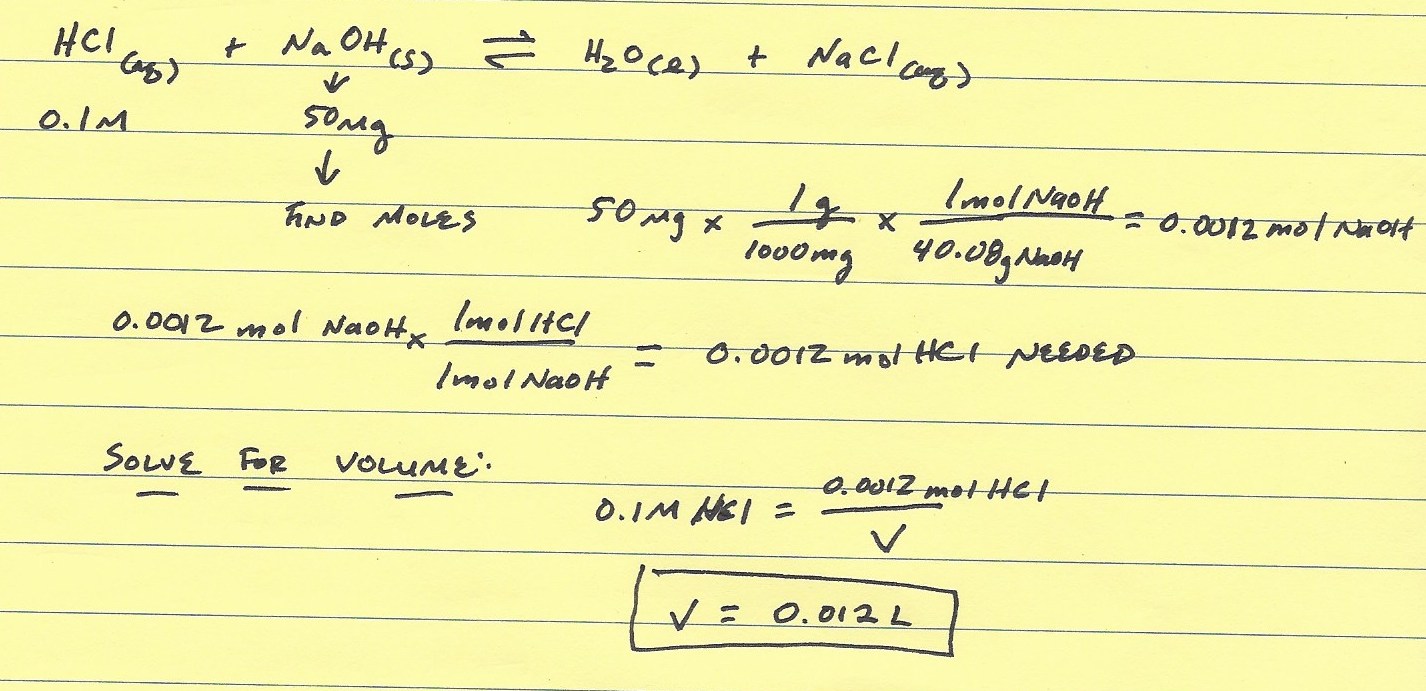 HCl(aq) + NaOH(s) ⇌ H₂O(l) + NaCl(aq)
↓
0.1M 50mg
↓
FIND MOLES 50mg x 1g/1000mg x 1molNaOH/40.08gNaOH = 0.0012 mol NaOH
0.0012 mol NaOH x 1molHCl/1molNaOH = 0.0012 mol HCl NEEDED
SOLVE FOR VOLUME:
0.1M HCl = 0.0012 mol HCl/V
V = 0.012 L